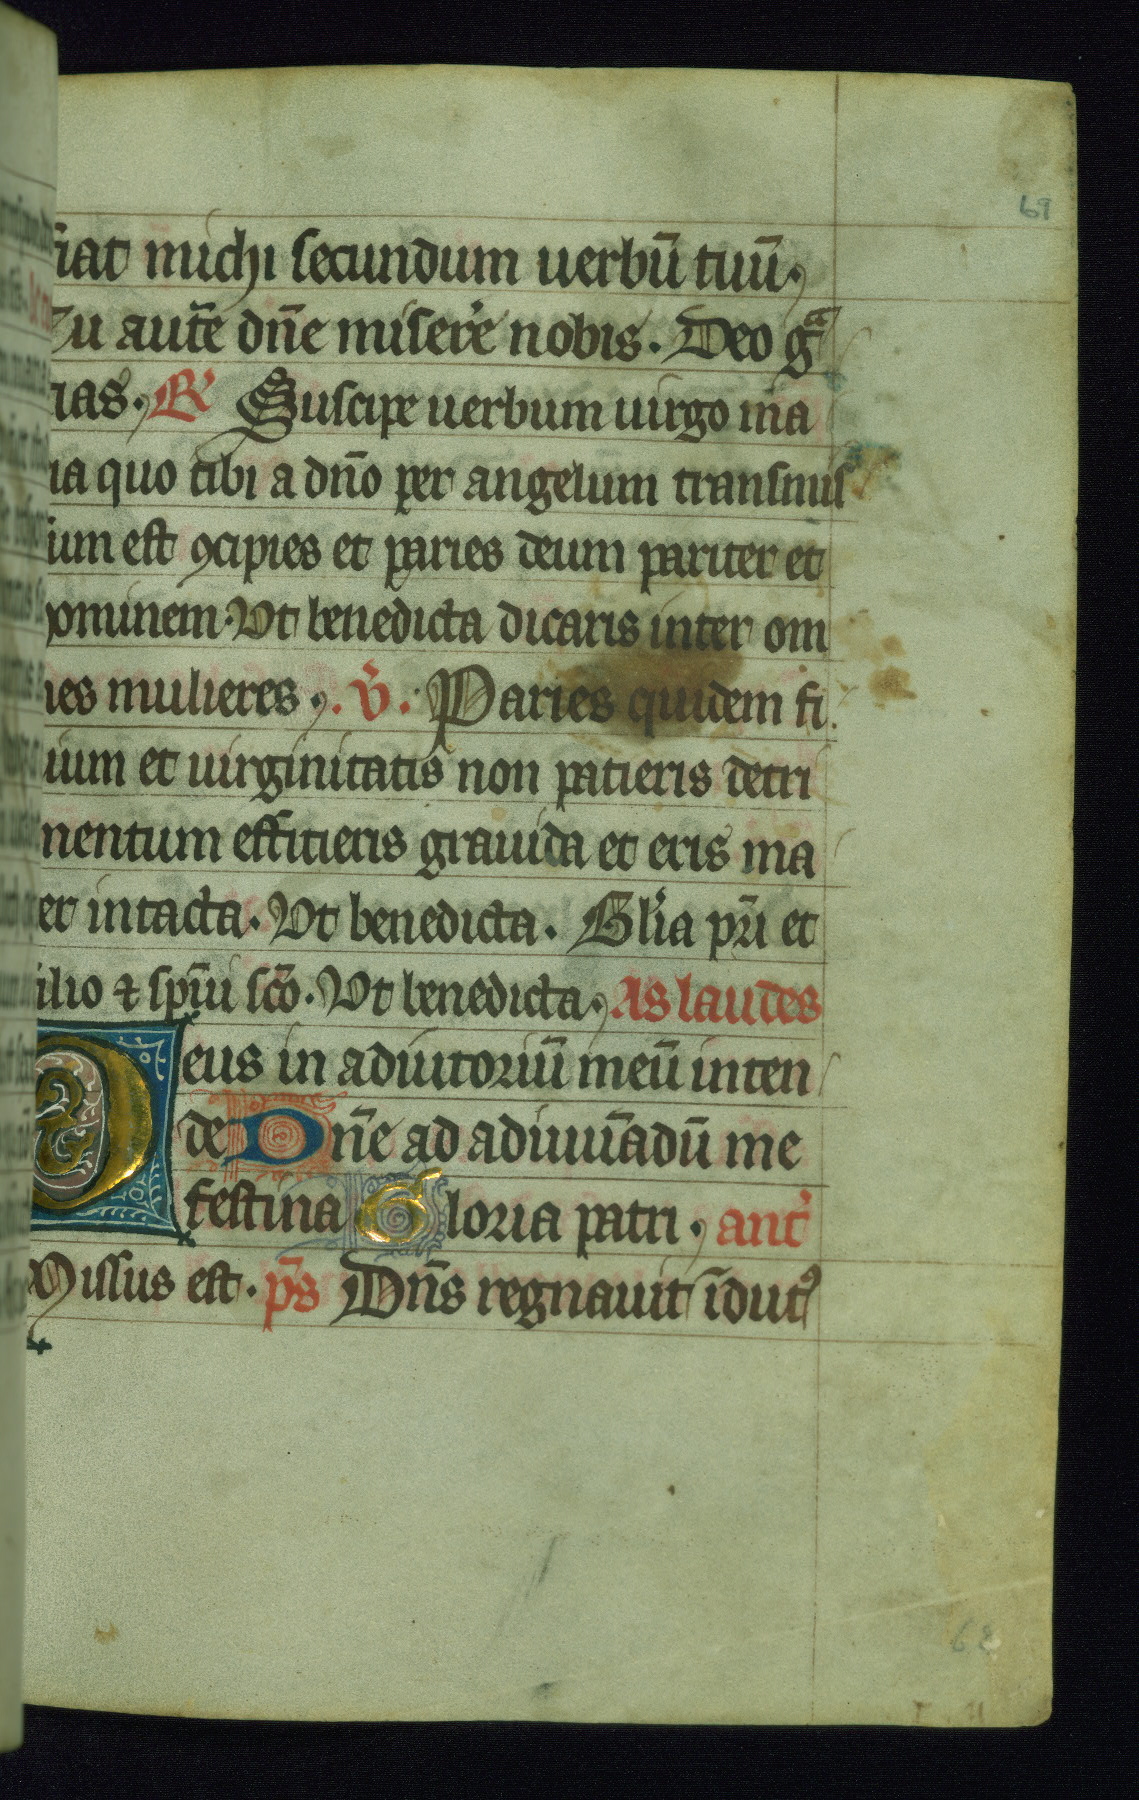 69
fiat michi secundum uerbū tuū.
Tu autē dn̄e miserẽ nobis. Deo gr̃a
tias. R̃ Suscipe uerbum uirgo ma
ria quo tibi a dn̄o per angelum transmis
sum est ꝯcipies et paries deum pariter et
hominem. Vt benedicta dicaris inter om
nes mulieres. v̄. Paries quidem fi
lium et uirginitatis non patieris detri
mentum efficieris grauida et eris ma
ter intacta. Vt benedicta. Glĩa pr̄i et
filio ⁊ spūi sc̄o. Vt benedicta. As laudes
Deus in adiutoriū meū inten
de Dn̄e ad adiuuādū me
festina Gloria patri. ant̃
Missus est. p̄s Dn̄s regnauit īdutꝰ
68